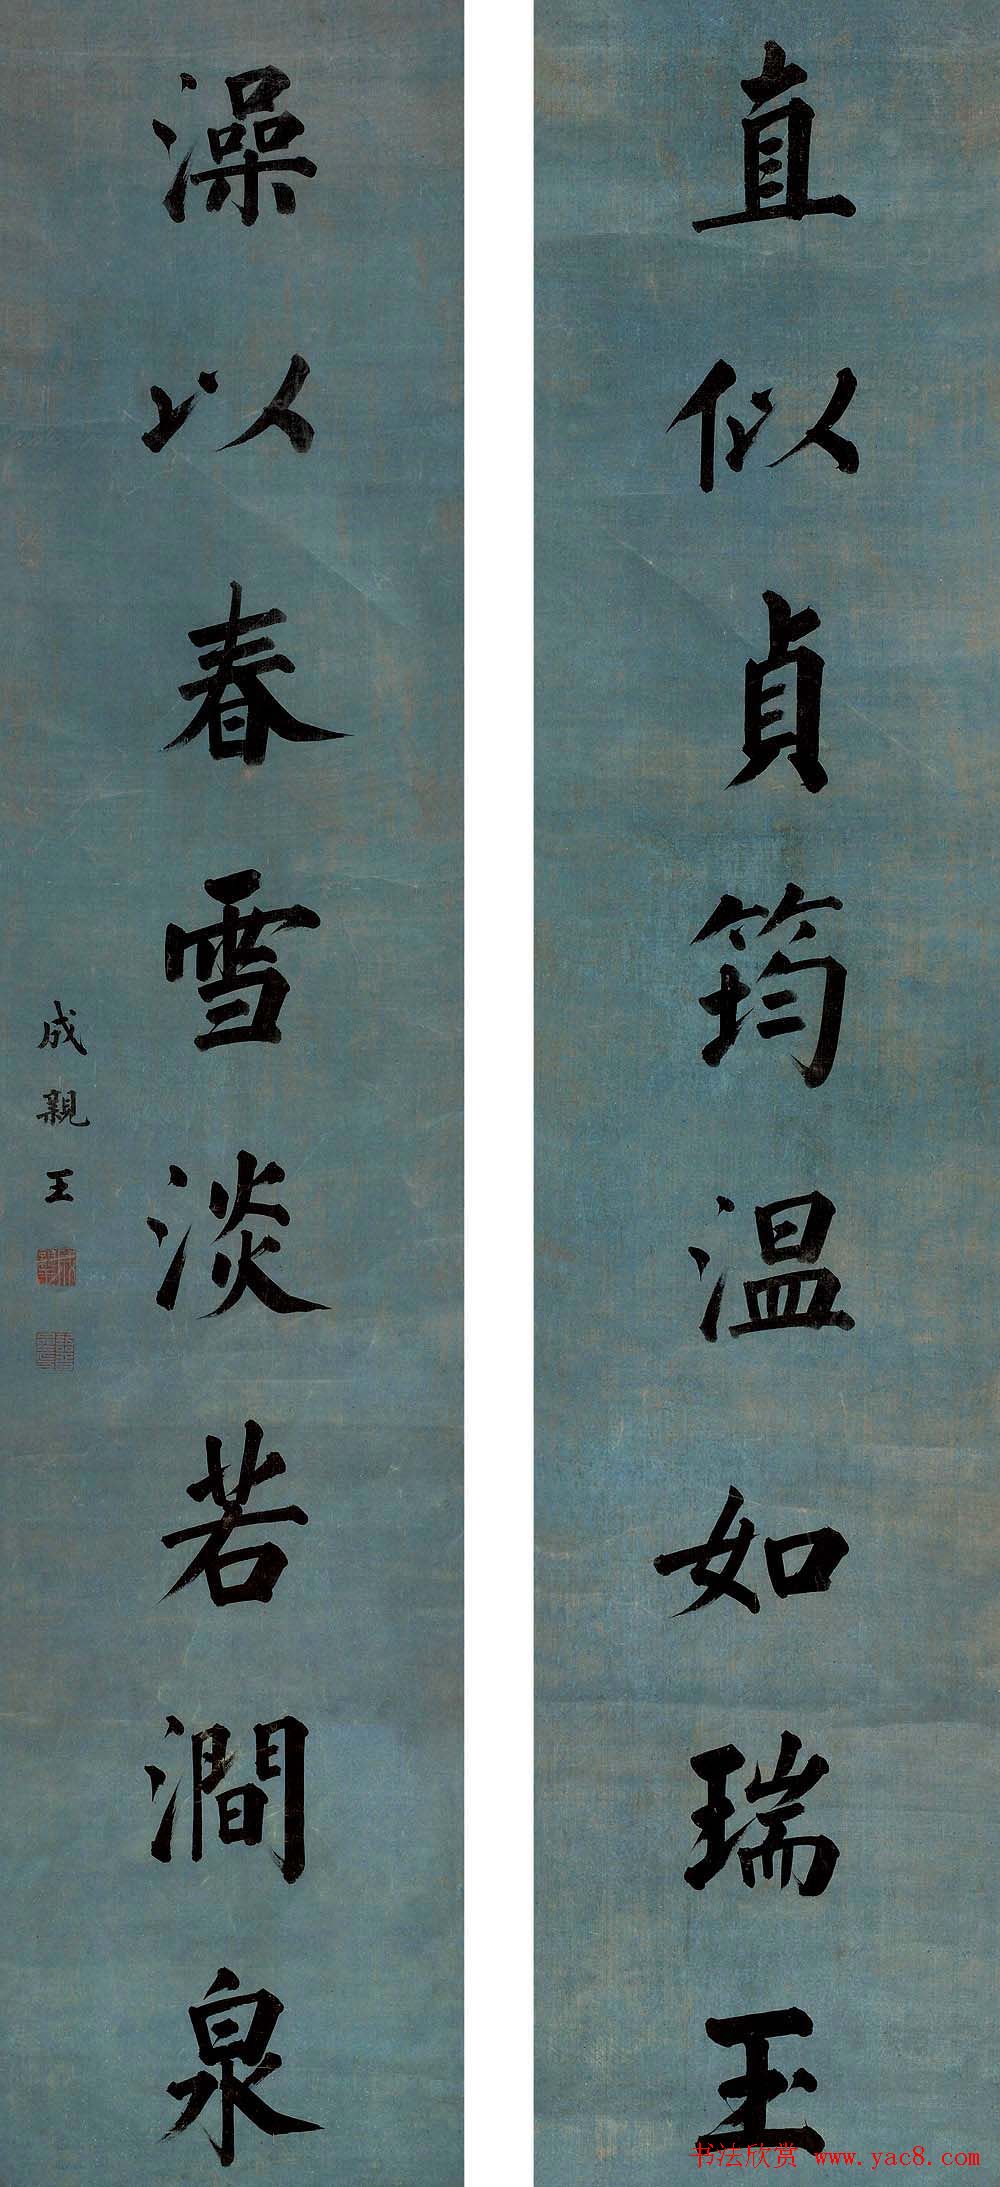 直似貞筠温如瑞玉
澡以春雪淡若澗泉
成親王
书法欣赏 www.yac8.com